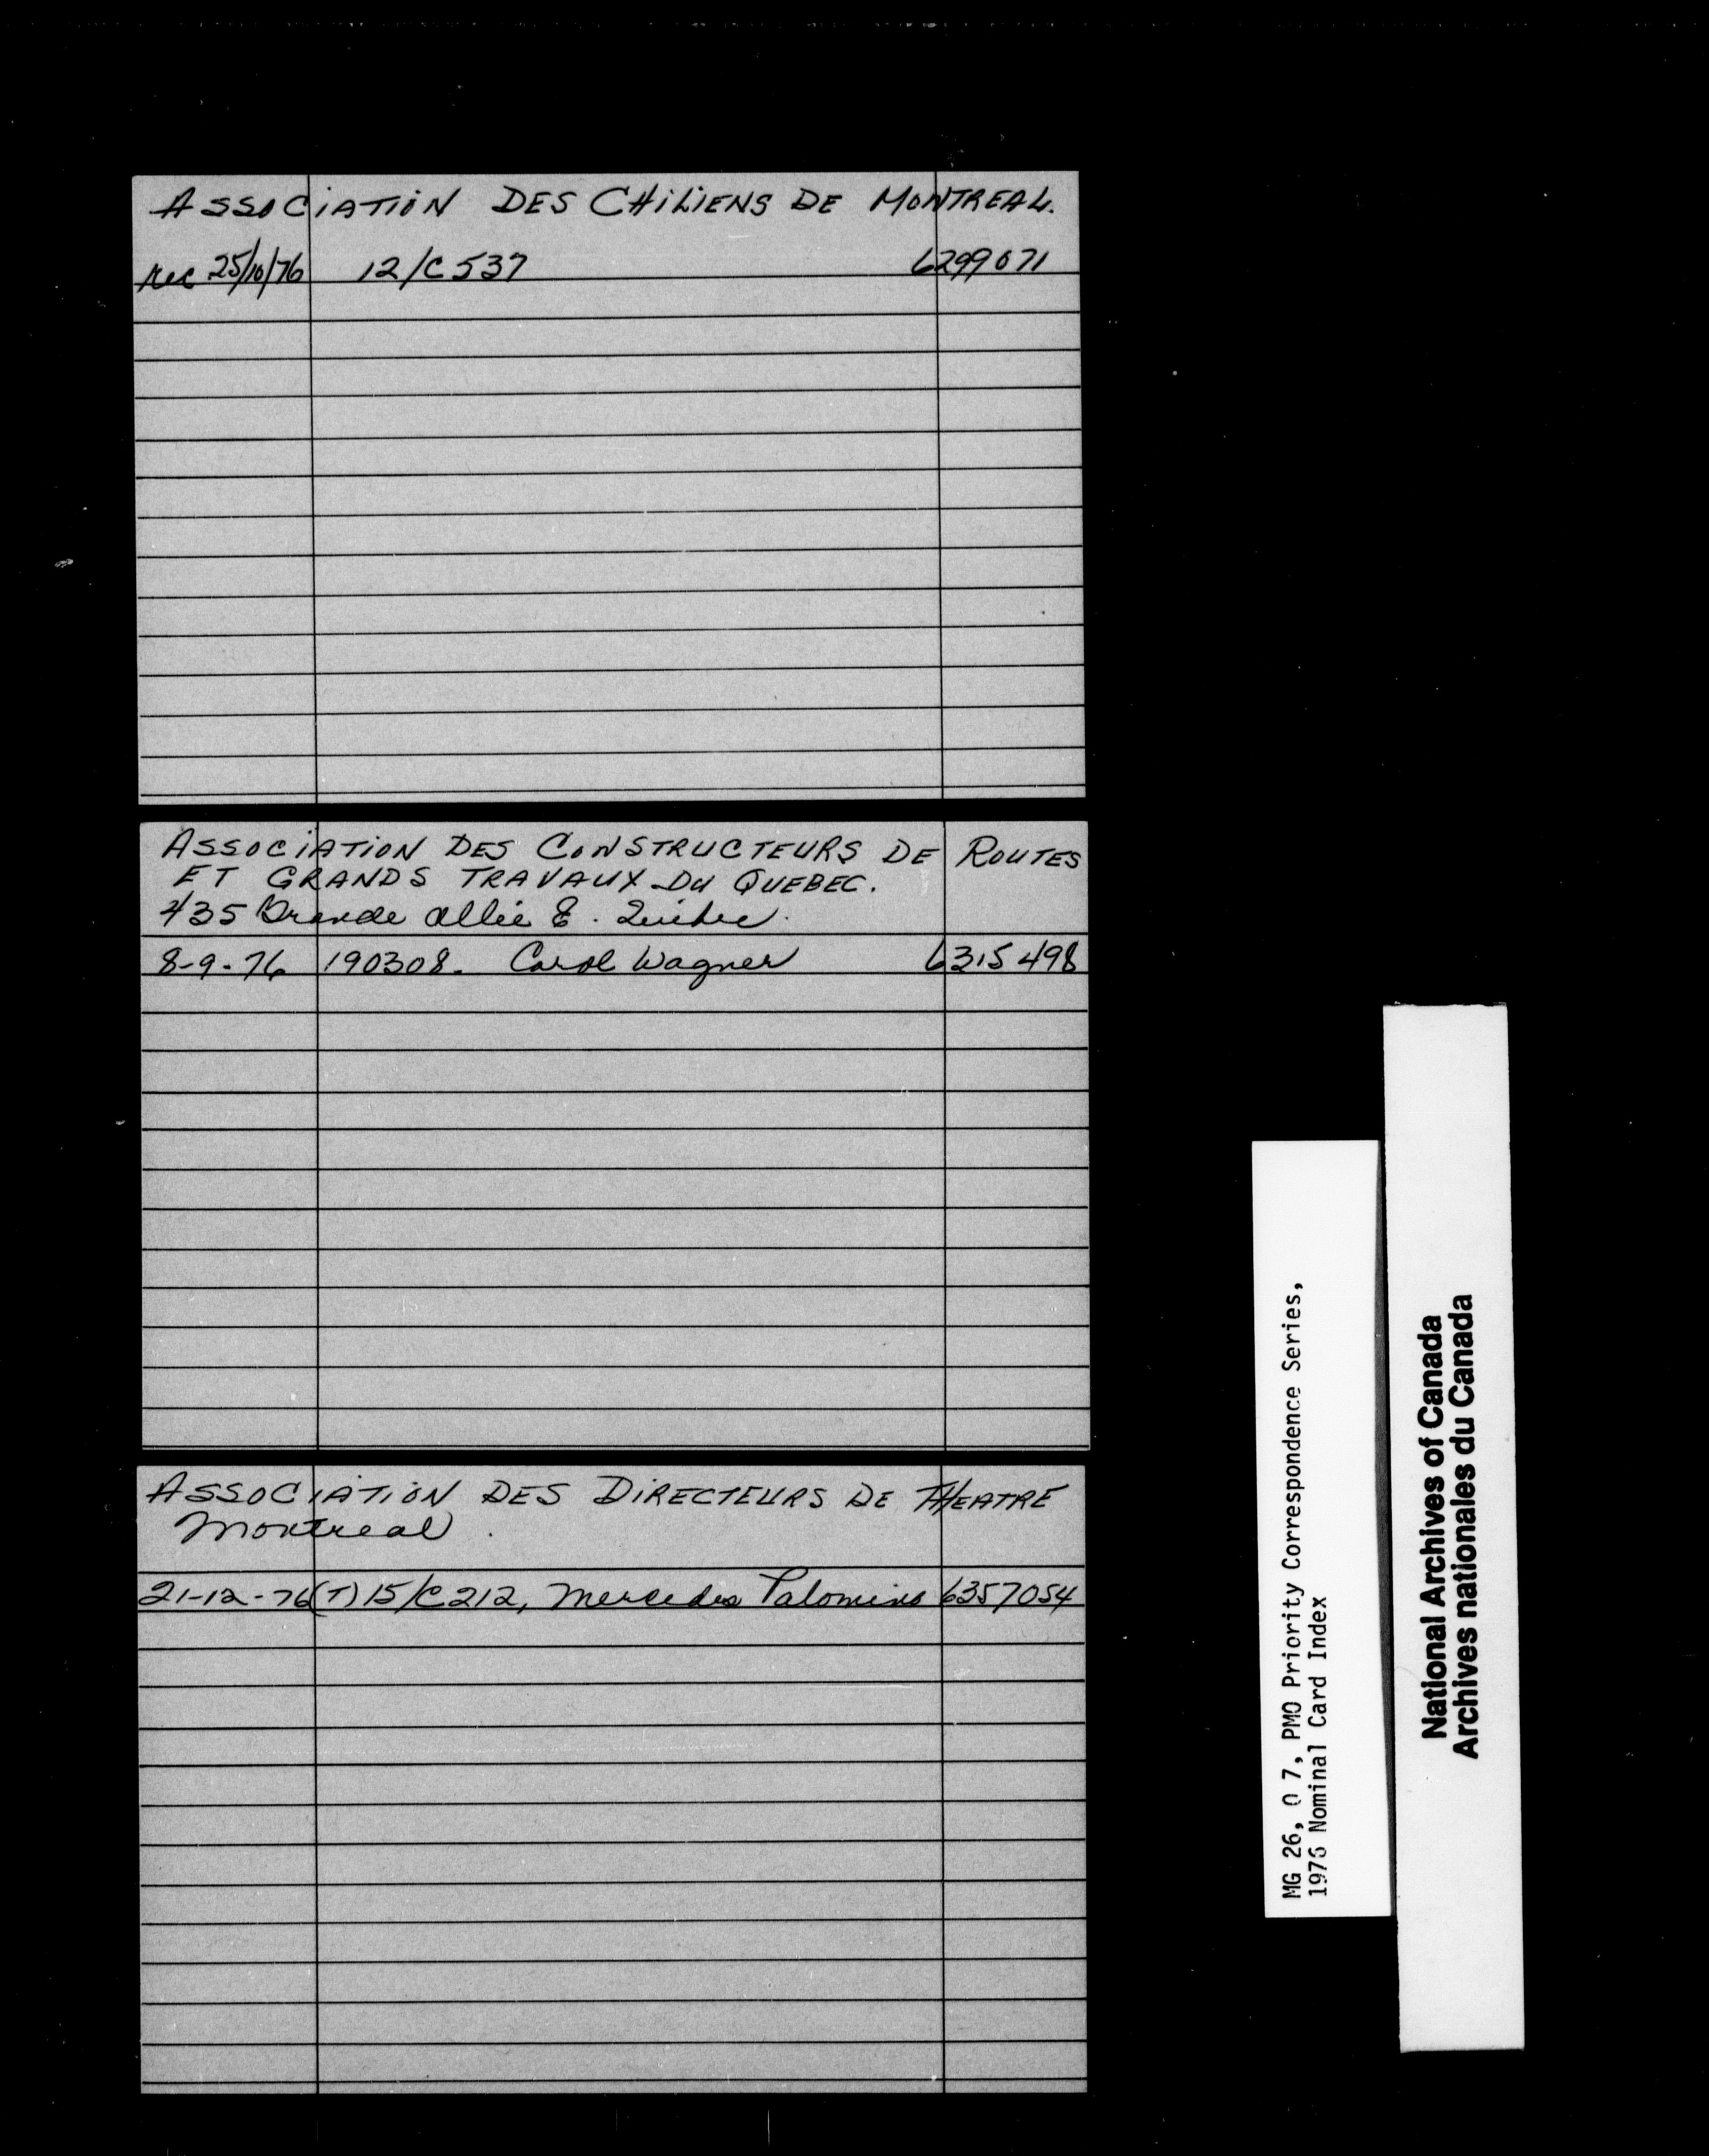 ASSOCIATION DES CHILIENS DE MONTREAL.
rec 25/10/76 12/C537 6299071
ASSOCIATION DES CONSTRUCTEURS DE ROUTES
ET GRANDS TRAVAUX DU QUEBEC.
435 Grande Allée E. Québec.
8-9-76 190308. Carol Wagner 6315498
ASSOCIATION DES DIRECTEURS DE THEATRE
Montreal.
21-12-76 (T) 15/C212, Mercedes Palomino 6357054
MG 26, O 7, PMO Priority Correspondence Series,
1976 Nominal Card Index
National Archives of Canada
Archives nationales du Canada